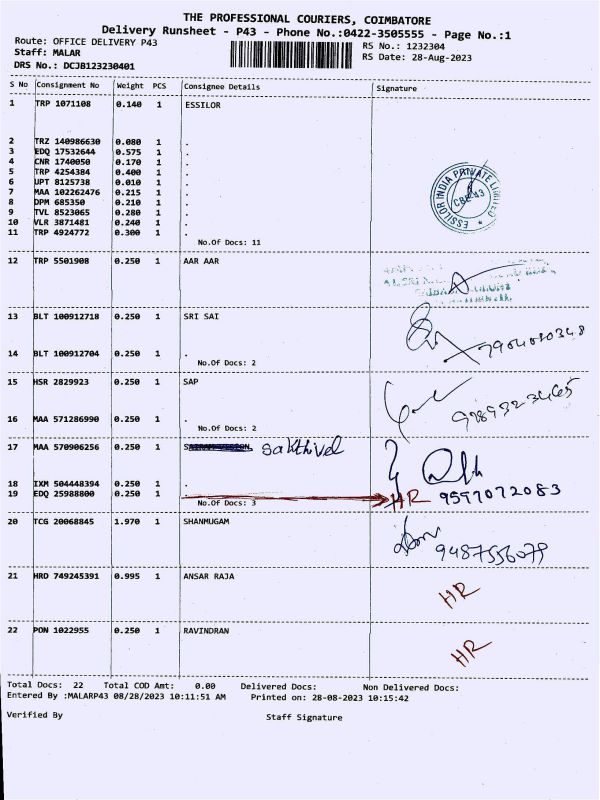 THE PROFESSIONAL COURIERS, COIMBATORE
Delivery Runsheet - P43 - Phone No.:0422-3505555 - Page No.:1
Route: OFFICE DELIVERY P43 RS No.: 1232304
Staff: MALAR RS Date: 28-Aug-2023
DRS No.: DCJB123230401
S No Consignment No Weight PCS Consignee Details Signature
1 TRP 1071108 0.140 1 ESSILOR
2 TRZ 140986630 0.080 1 .
3 EDQ 17532644 0.575 1 .
4 CNR 1740050 0.170 1 .
5 TRP 4254384 0.400 1 .
6 UPT 8125738 0.010 1 .
7 MAA 102262476 0.215 1 .
8 DPM 685350 0.210 1 .
9 TVL 8523065 0.280 1 .
10 VLR 3871481 0.240 1 .
11 TRP 4924772 0.300 1 .
No.Of Docs: 11
ESSILOR INDIA PRIVATE LIMITED
CBE-43
12 TRP 5501908 0.250 1 AAR AAR
13 BLT 100912718 0.250 1 SRI SAI
7904080348
14 BLT 100912704 0.250 1 .
No.Of Docs: 2
15 HSR 2829923 0.250 1 SAP
16 MAA 571286990 0.250 1 .
No.Of Docs: 2
17 MAA 570906256 0.250 1 Sakthivel
18 IXM 504448394 0.250 1 .
19 EDQ 25988800 0.250 1 . HR 9597072083
No.Of Docs: 3
20 TCG 20068845 1.970 1 SHANMUGAM
9487556079
21 HRD 749245391 0.995 1 ANSAR RAJA
HR
22 PON 1022955 0.250 1 RAVINDRAN
HR
Total Docs: 22 Total COD Amt: 0.00 Delivered Docs: Non Delivered Docs:
Entered By :MALARP43 08/28/2023 10:11:51 AM Printed on: 28-08-2023 10:15:42
Verified By Staff Signature